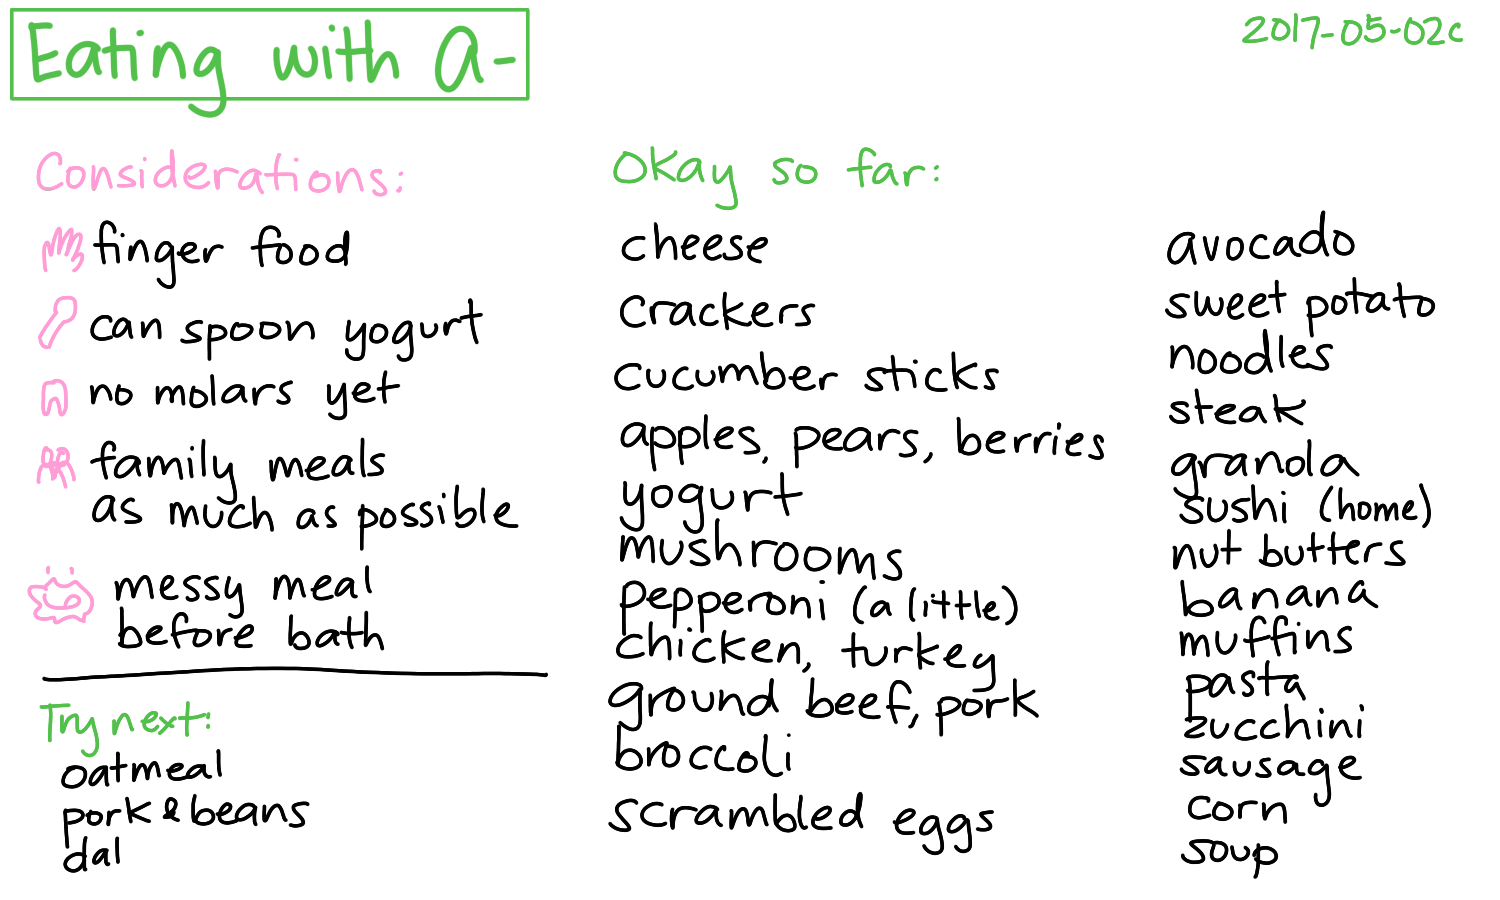 Eating with A-
2017-05-02c
Considerations:
finger food
can spoon yogurt
no molars yet
family meals
as much as possible
messy meal
before bath
Try next:
oatmeal
pork & beans
dal
Okay so far:
cheese
crackers
cucumber sticks
apples, pears, berries
yogurt
mushrooms
pepperoni (a little)
chicken, turkey
ground beef, pork
broccoli
scrambled eggs
avocado
sweet potato
noodles
steak
granola
sushi (home)
nut butters
banana
muffins
pasta
zucchini
sausage
corn
soup